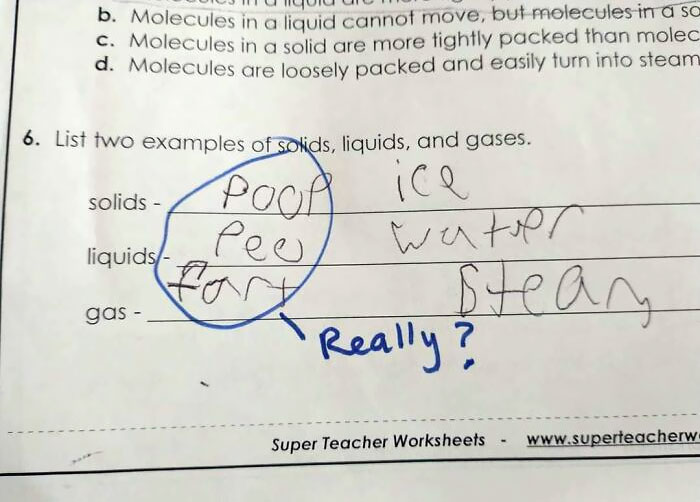 b. Molecules in a liquid cannot move, but molecules in a so
c. Molecules in a solid are more tightly packed than molec
d. Molecules are loosely packed and easily turn into steam
6. List two examples of solids, liquids, and gases.
solids - Poop ice
liquids - Pee water
gas - fart Steam
Really?
Super Teacher Worksheets - www.superteacherw